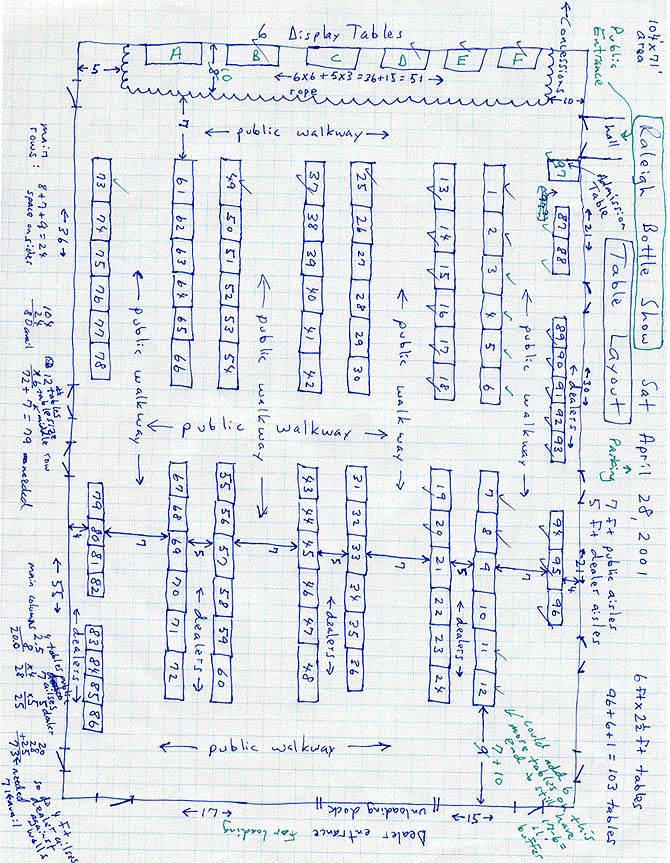 104x71
area
Public
Entrance
Raleigh Bottle Show
Sat April 28, 2001
Table Layout
Parking
7 ft public aisles
5 ft dealer aisles
6ft x 2½ ft tables
96+6+1 = 103 tables
←Concessions
hall
Admission
Table
97
←21→
←30→
←21→
←10→
87 88
←dealers→
89 90 91 92 93
94 95 96
4
6 Display Tables
A B C D E F
←5→
8
←6x6+5x3=36+15=51→
rope
←public walkway→
7
1 2 3 4 5 6
7 8 9 10 11 12
13 14 15 16 17 18
19 20 21 22 23 24
25 26 27 28 29 30
31 32 33 34 35 36
37 38 39 40 41 42
43 44 45 46 47 48
49 50 51 52 53 54
55 56 57 58 59 60
61 62 63 64 65 66
67 68 69 70 71 72
73 74 75 76 77 78
79 80 81 82
83 84 85 86
←public walkway→
←public walkway→
←public walkway→
←public walkway→
←public walkway→
←public walkway→
←dealers→
←dealers→
←dealers→
←dealers→
4 7 5 7 5 7 5 7
9
could add 6
more tables on this
end → still have
7+10
←15→
unloading dock
Dealer entrance
For loading
←17→
←36→
←55→
main
rows:
8+7+9=24
space on sides
104
24
80 avail
12 tables
x6 table size
72+7=79 needed
middle row
main columns
4 tables
2.5
8
20.0
7
x4
28
5
x5
25
public
dealer
20
28
+25
73 ← needed
71 ← avail
so do 4 ft aisles
dealer against
walls